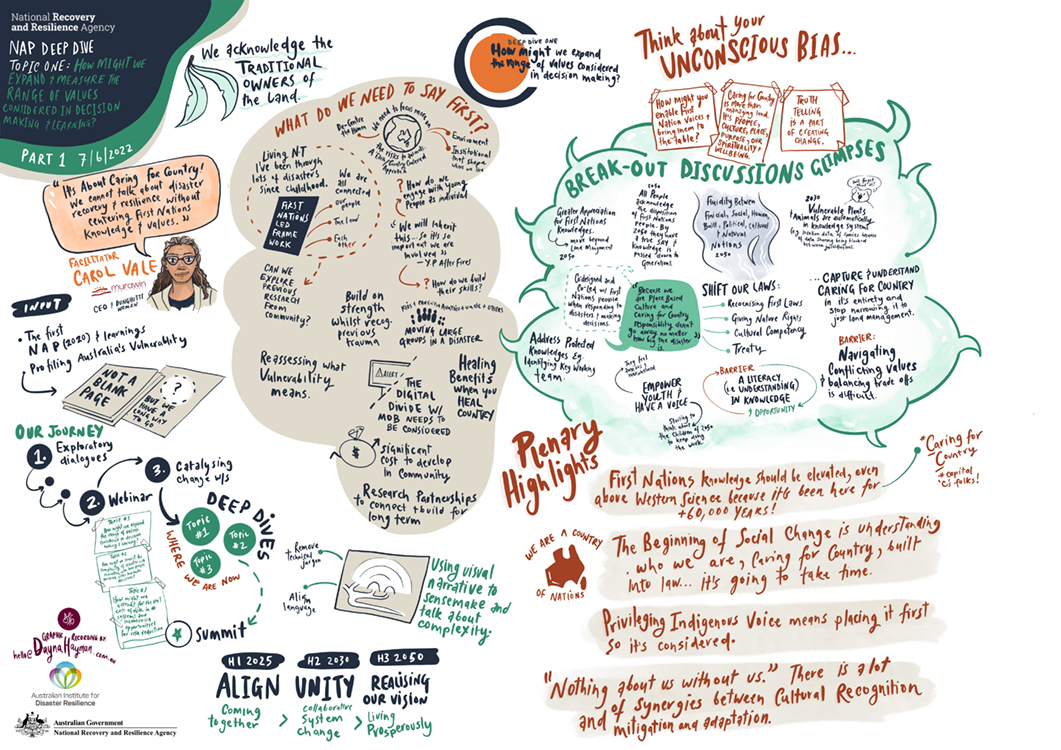 National Recovery
and Resilience Agency
NAP DEEP DIVE
TOPIC ONE: HOW MIGHT WE
EXPAND & MEASURE THE
RANGE OF VALUES
CONSIDERED IN DECISION
MAKING & LEARNING?
PART 1 7/6/2022
We acknowledge the
TRADITIONAL
OWNERS OF
the Land.
"It's About Caring For Country!
We cannot talk about disaster
recovery & resilience without
centering First Nations
Knowledge & Values."
FACILITATOR
CAROL VALE
murawin
CEO | DUNGHUTTI
WOMEN
INPUT
• The first
NAP (2020) & learnings
• Profiling Australia's Vulnerability
NOT A
BLANK
PAGE
?
BUT WE
HAVE A
LONG WAY
TO GO
OUR JOURNEY
1. Exploratory
dialogues
2. Webinar
3. Catalysing
change w/s
DEEP DIVES
Topic
#1
Topic
#2
Topic
#3
WHERE WE ARE NOW
Topic #1
Topic #2
Summit
GRAPHIC RECORDING BY:
hello@DaynaHayman.com.au
Australian Institute for
Disaster Resilience
Australian Government
National Recovery and Resilience Agency
H1 2025
ALIGN
Coming
together
>
H2 2030
UNITY
collaborative
System
change
>
H3 2050
REALISING
OUR VISION
Living
Prosperously
DEEP DIVE ONE
How might we expand
the range of values considered
in decision making?
WHAT DO WE NEED TO SAY FIRST?
De-Centre
the Human
We need to focus more on
A Country Centered
Approach
Environment
Institutional
Living NT
I've been through
lots of disasters
since childhood.
We are
all
connected
Our
people
The Land
Each
other
FIRST
NATIONS
LED
FRAME
WORK
? How do we
engage with young
people as individual
We will inherit
this... so it's so
important we are
involved"
- Y.P After Fires
? How do we build
their skills?
CAN WE
EXPLORE
PREVIOUS
RESEARCH
FROM
COMMUNITY?
Build on
strength
whilst recog.
previous
trauma
MOVING LARGE
GROUPS IN A DISASTER
Reassessing what
Vulnerability
means.
ALERT
THE
DIGITAL
DIVIDE W/
MOB NEEDS TO
BE CONSIDERED
Healing
Benefits
when you
HEAL
COUNTRY
$
Significant
cost to develop
in Community
Research Partnerships
to connect & build for
long term
Remove
technical
jargon
Align
language
Using visual
narrative to
sensemake and
talk about
complexity.
Think about your
UNCONSCIOUS BIAS...
How might you
enable First
Nation Voices +
bring them to
the table?
Caring for Country
is more than
managing land.
It's PEOPLE,
CULTURE, PLACE,
PURPOSE, OUR
SPIRITUALITY &
WELLBEING.
TRUTH
TELLING
IS A PART
OF
CREATING
CHANGE.
BREAK-OUT DISCUSSIONS GLIMPSES
Greater Appreciation
for First Nations
Knowledge.
move beyond
Land Management
2050
2050
All People
acknowledge
the disposition
of First Nations
People. By
2050 they have
a true SAY &
Knowledge is
passed down to
Generations.
Fluidity Between
Financial, Social, Human,
Built, Political, Cultural
& Natural
Notions
2050
2030
Vulnerable Plants
& Animals are automatically
in knowledge system
Codesigned and
Co-Led w/ First
Nations people
when responding to
disasters & making
decisions.
"Because we
are Place Based
Culture and
Caring for Country
responsibility doesn't
go away no matter
how big the disaster
is.
SHIFT OUR LAWS:
Recognising First Laws
Giving Nature Rights
Cultural Competency
Treaty
... CAPTURE & UNDERSTAND
CARING FOR COUNTRY
in it's entirety and
stop narrowing it to
just land management.
Address Protected
Knowledges Eg.
Identifying Key Working
team.
EMPOWER
YOUTH &
HAVE A VOICE
Starting to
think about
the children of 2050
to keep doing
the work.
BARRIER
A LITERACY
(i.e UNDERSTANDING)
IN KNOWLEDGE
& OPPORTUNITY
BARRIER:
Navigating
Conflicting Values
& balancing trade offs
is difficult.
Plenary
Highlights
First Nations knowledge should be elevated, even
above Western Science because it's been here for
+60,000 YEARS!
*Caring for
Country
*capital
'C' folks!
WE ARE A COUNTRY
OF NATIONS
The Beginning of Social Change is understanding
who we are, Caring for Country, built
into law... it's going to take time.
Privileging Indigenous Voice means placing it first
so it's considered.
"Nothing about us without us." There is a lot
of Synergies between Cultural Recognition
and mitigation and adaptation.